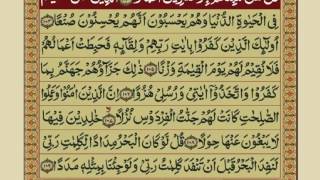 فِي الْحَيٰوةِ الدُّنْيَا وَهُمْ يَحْسَبُوْنَ اَنَّهُمْ يُحْسِنُوْنَ صُنْعًا ﴿۱۰۴﴾
اُولٰٓئِكَ الَّذِيْنَ كَفَرُوْا بِاٰيٰتِ رَبِّهِمْ وَلِقَآئِهٖ فَحَبِطَتْ اَعْمَالُهُمْ
فَلَا نُقِيْمُ لَهُمْ يَوْمَ الْقِيٰمَةِ وَزْنًا ﴿۱۰۵﴾ ذٰلِكَ جَزَآؤُهُمْ جَهَنَّمُ بِمَا
كَفَرُوْا وَاتَّخَذُوْٓا اٰيٰتِيْ وَرُسُلِيْ هُزُوًا ﴿۱۰۶﴾ اِنَّ الَّذِيْنَ اٰمَنُوْا وَعَمِلُوا
الصّٰلِحٰتِ كَانَتْ لَهُمْ جَنّٰتُ الْفِرْدَوْسِ نُزُلًا ﴿۱۰۷﴾ خٰلِدِيْنَ فِيْهَا
لَا يَبْغُوْنَ عَنْهَا حِوَلًا ﴿۱۰۸﴾ قُلْ لَّوْ كَانَ الْبَحْرُ مِدَادًا لِّكَلِمٰتِ رَبِّيْ
لَنَفِدَ الْبَحْرُ قَبْلَ اَنْ تَنْفَدَ كَلِمٰتُ رَبِّيْ وَلَوْ جِئْنَا بِمِثْلِهٖ مَدَدًا ﴿۱۰۹﴾